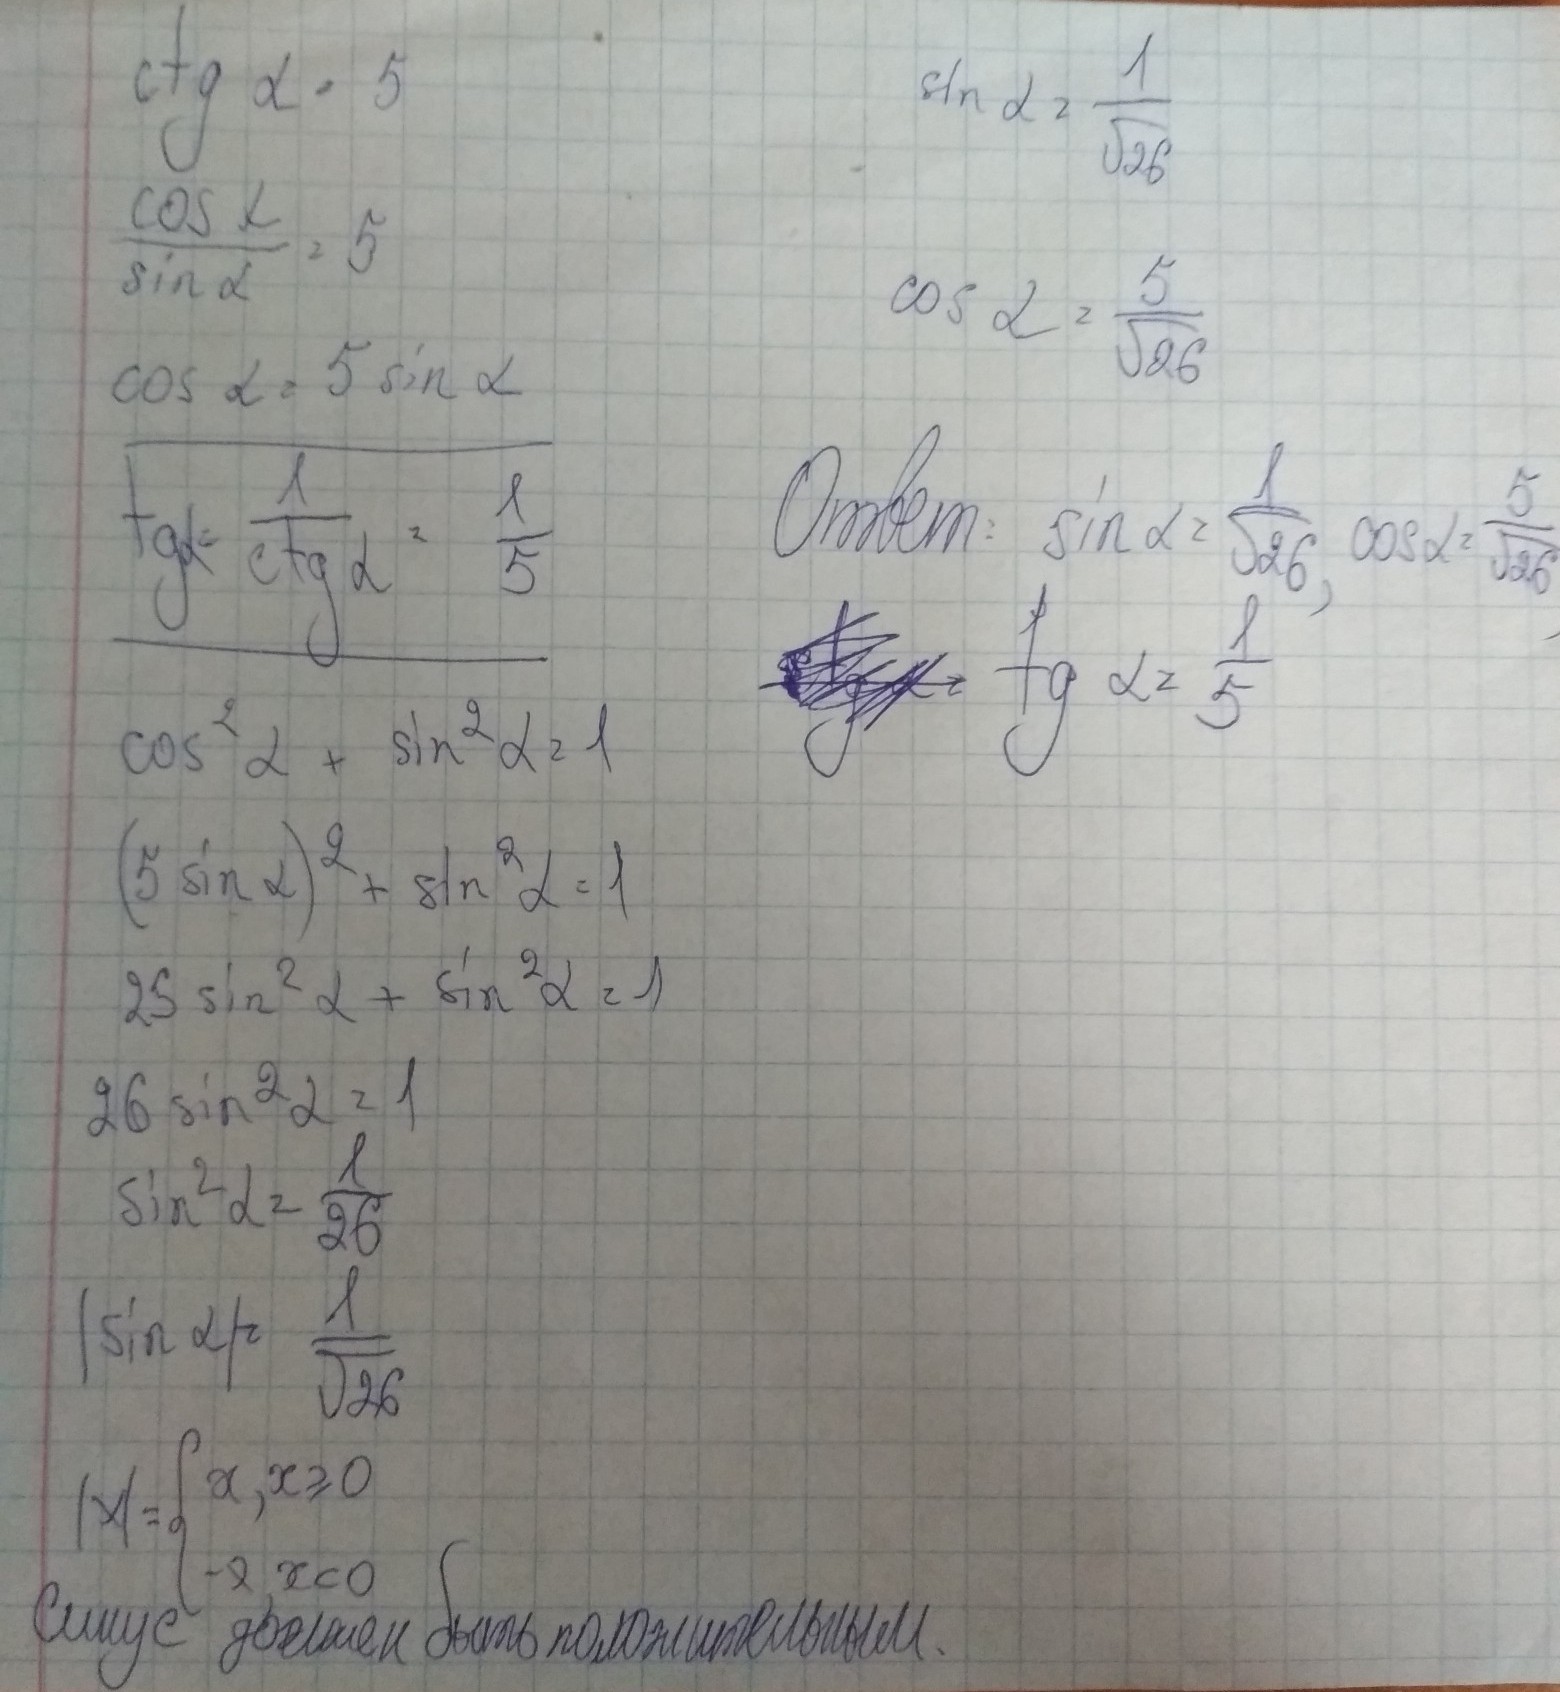 ctg α = 5
cos α / sin α = 5
cos α = 5 sin α
tg α = 1 / ctg α = 1/5
cos² α + sin² α = 1
(5 sin α)² + sin² α = 1
25 sin² α + sin² α = 1
26 sin² α = 1
sin² α = 1/26
|sin α| = 1/√26
|x| = { x, x ≥ 0
-x, x < 0
Синус должен быть положительным.
sin α = 1/√26
cos α = 5/√26
Ответ: sin α = 1/√26, cos α = 5/√26,
tg α = 1/5